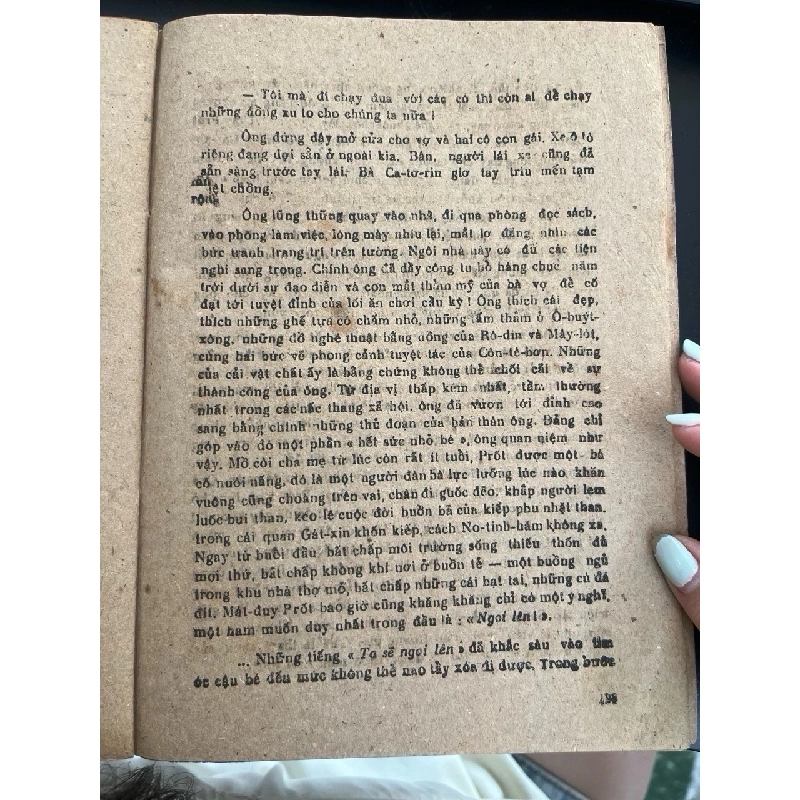 — Tôi mà đi chạy đua với các cô thì còn ai để chạy
những đồng xu to cho chúng ta nữa !
Ông đứng dậy mở cửa cho vợ và hai cô con gái. Xe ô tô
riêng đang đợi sẵn ở ngoài kia. Bản, người lái xe cũng đã
sẵn sàng trước tay lái. Bà Ca-tơ-rin giơ tay trìu mến tạm
biệt chồng.
rộng
Ông lững thững quay vào nhà, đi qua phòng đọc sách,
vào phòng làm việc, lông mày nhíu lại, mắt lơ đãng nhìn các
bức tranh trang trí trên tường. Ngôi nhà này có đủ các tiện
nghi sang trọng. Chính ông đã dầy công tu bổ hàng chục năm
trời dưới sự đạo diễn và con mắt thẩm mỹ của bà vợ để cố
đạt tới tuyệt đỉnh của lối ăn chơi cầu kỳ ! Ông thích cái đẹp,
thích những ghế tựa có chấm nhỏ, những tấm thảm ở Ô-buýt-
xông, những đồ nghệ thuật bằng đồng của Rô-din và Mây-lót,
cùng hai bức vẽ phong cảnh tuyệt tác của Côn-tê-bơn. Những
của cải vật chất ấy là bằng chứng không thể chối cãi về sự
thành công của ông. Từ địa vị thấp kém nhất, tầm thường
nhất trong các nấc thang xã hội, ông đã vươn tới đỉnh cao
sang bằng chính những thủ đoạn của bản thân ông. Đảng chỉ
góp vào đó một phần « hết sức nhỏ bé », ông quan niệm như
vậy. Mồ côi cha mẹ từ lúc còn rất ít tuổi, Prốt được một bà
cô nuôi nấng, đó là một người đàn bà lực lưỡng lúc nào khăn
vuông cũng choàng trên vai, chân đi guốc đẽo, khắp người lem
luốc bụi than, kéo lê cuộc đời buồn bã của kiếp phu nhặt than,
trong cái quán Gát-xin khốn kiếp, cách No-tinh-hăm không xa.
Ngay từ buổi đầu bất chấp môi trường sống thiếu thốn đủ
mọi thứ, bất chấp không khí nơi ở buồn tẻ — một buồng ngủ
trong khu nhà thợ mỏ, bất chấp những cái bạt tai, những cú đá
đít. Mát-duy Prốt bao giờ cũng khăng khăng chỉ có một ý nghĩ,
một ham muốn duy nhất trong đầu là : « Ngoi lên! ».
... Những tiếng « Ta sẽ ngoi lên » đã khắc sâu vào tim
óc cậu bé đến mức không thể nào tẩy xóa đi được. Trong bước